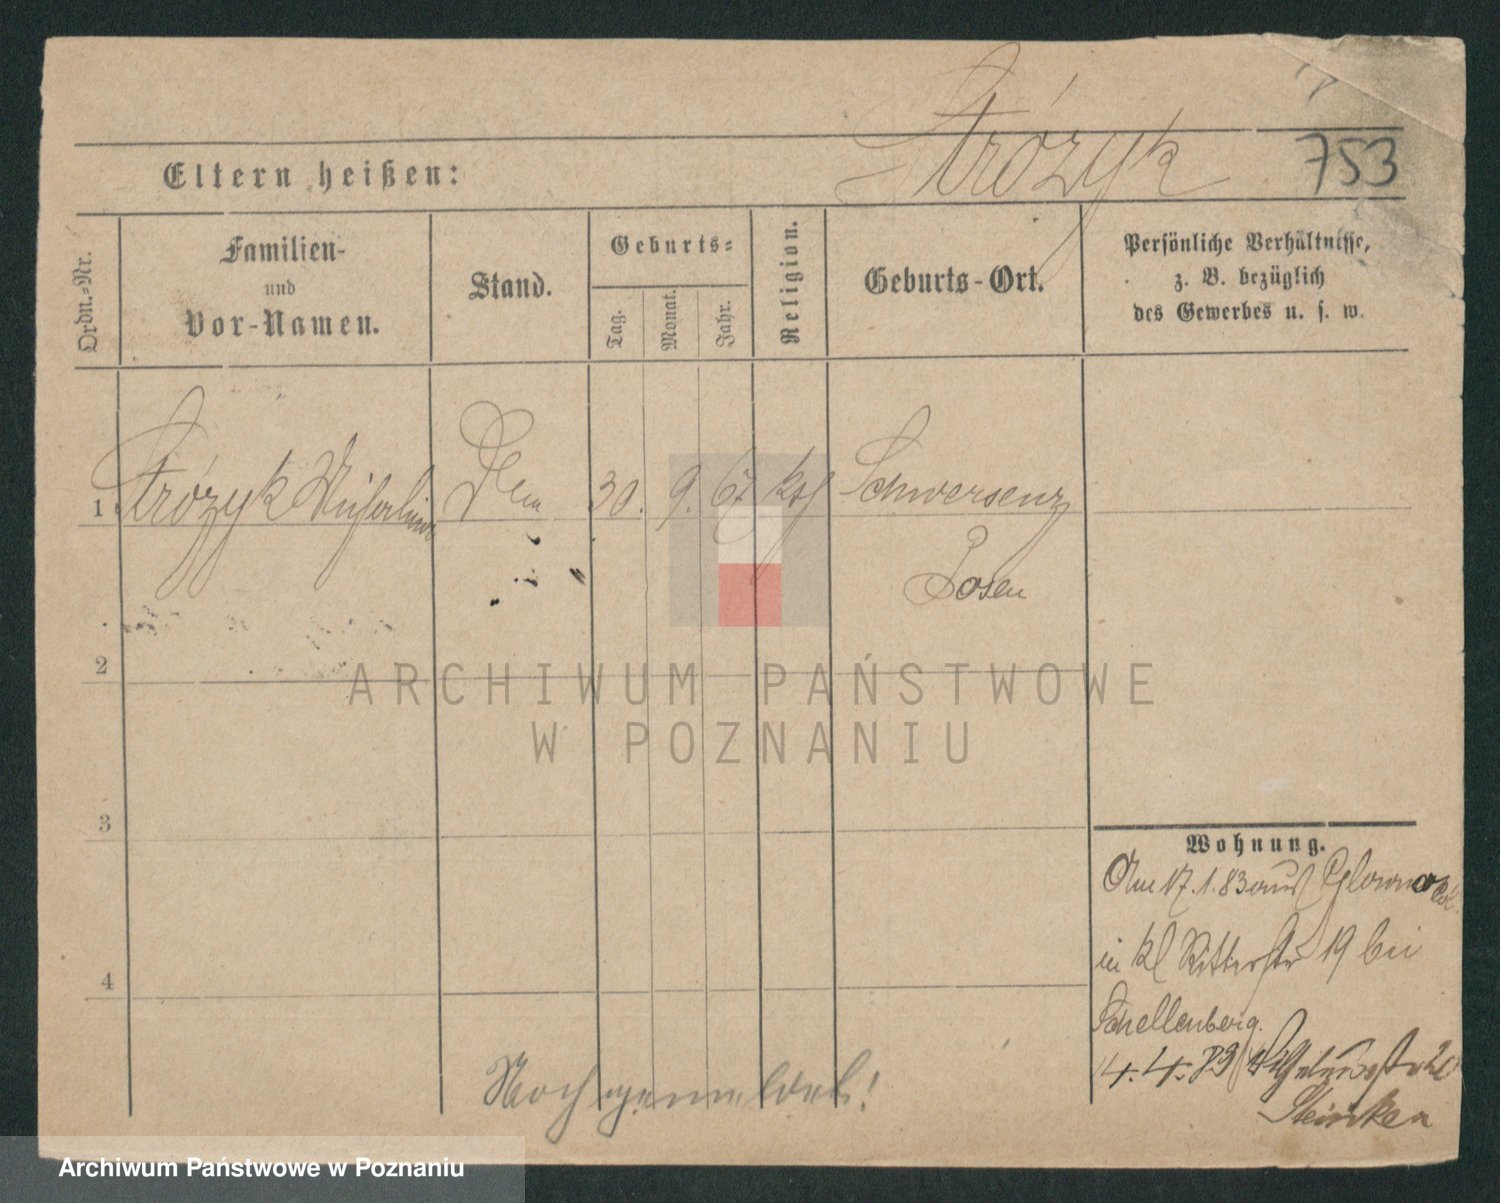 Stróżyk 753
Eltern heißen:
Ordn.-Nr.
Familien-
und
Vor-Namen.
Stand.
Geburts-
Tag.
Monat.
Jahr.
Religion.
Geburts-Ort.
Persönliche Verhältnisse,
z. B. bezüglich
des Gewerbes u. s. w.
1 Strózyk 30. 9. 67 kth Schwersenz
Posen
2
3
4
ARCHIWUM PAŃSTWOWE
W POZNANIU
Wohnung.
Am 17.1.83 aus Glowno
in kl Ritterstr 19 bei
Schellenberg.
Noch gemeldet!
Archiwum Państwowe w Poznaniu